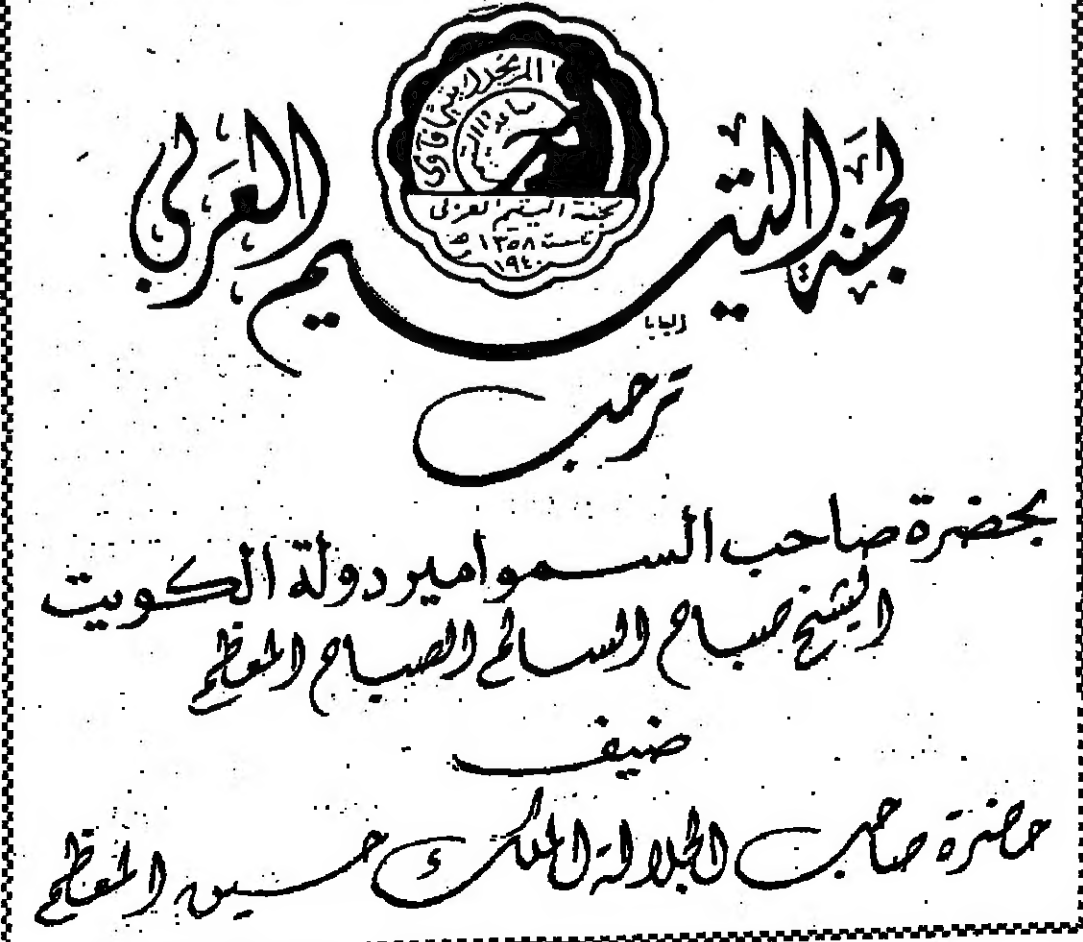 لجنة اليتيم العربي
الم يجدك يتيما فآوى
لجنة اليتيم العربي
تأسست ١٣٥٨ هـ
١٩٤٠
ترحب
بحضرة صاحب السمو امير دولة الكويت
الشيخ صباح السالم الصباح المعظم
ضيف
حضرة صاحب الجلالة الملك حسين المعظم